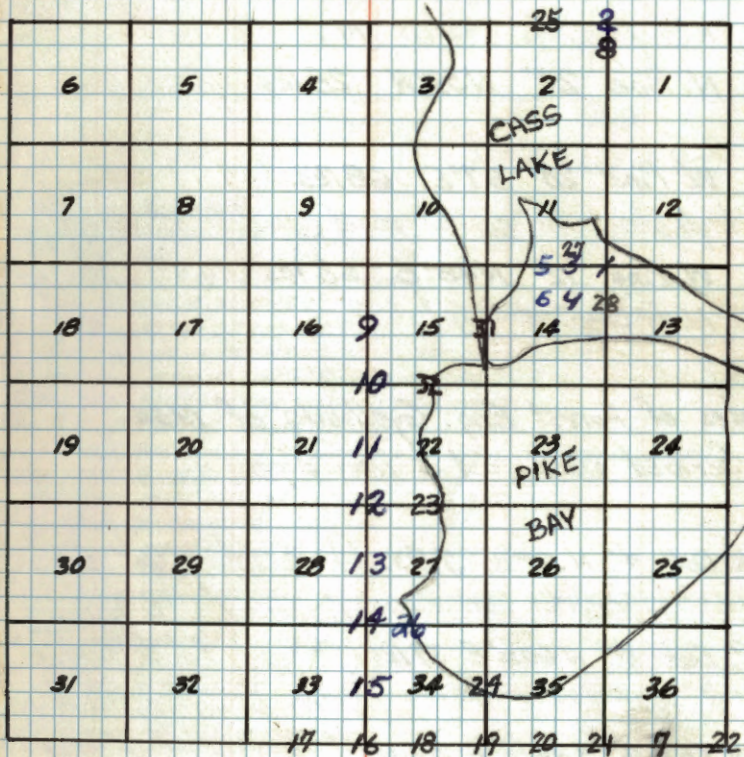 25 2
8
6 5 4 3 2 1
CASS
LAKE
7 8 9 10 11 12
27
5 3 1
6 4 28
18 17 16 9 15 31 14 13
10 32
19 20 21 11 22 23 24
PIKE
12 23
BAY
30 29 28 13 27 26 25
14 26
31 32 33 15 34 24 35 36
17 16 18 19 20 21 7 22